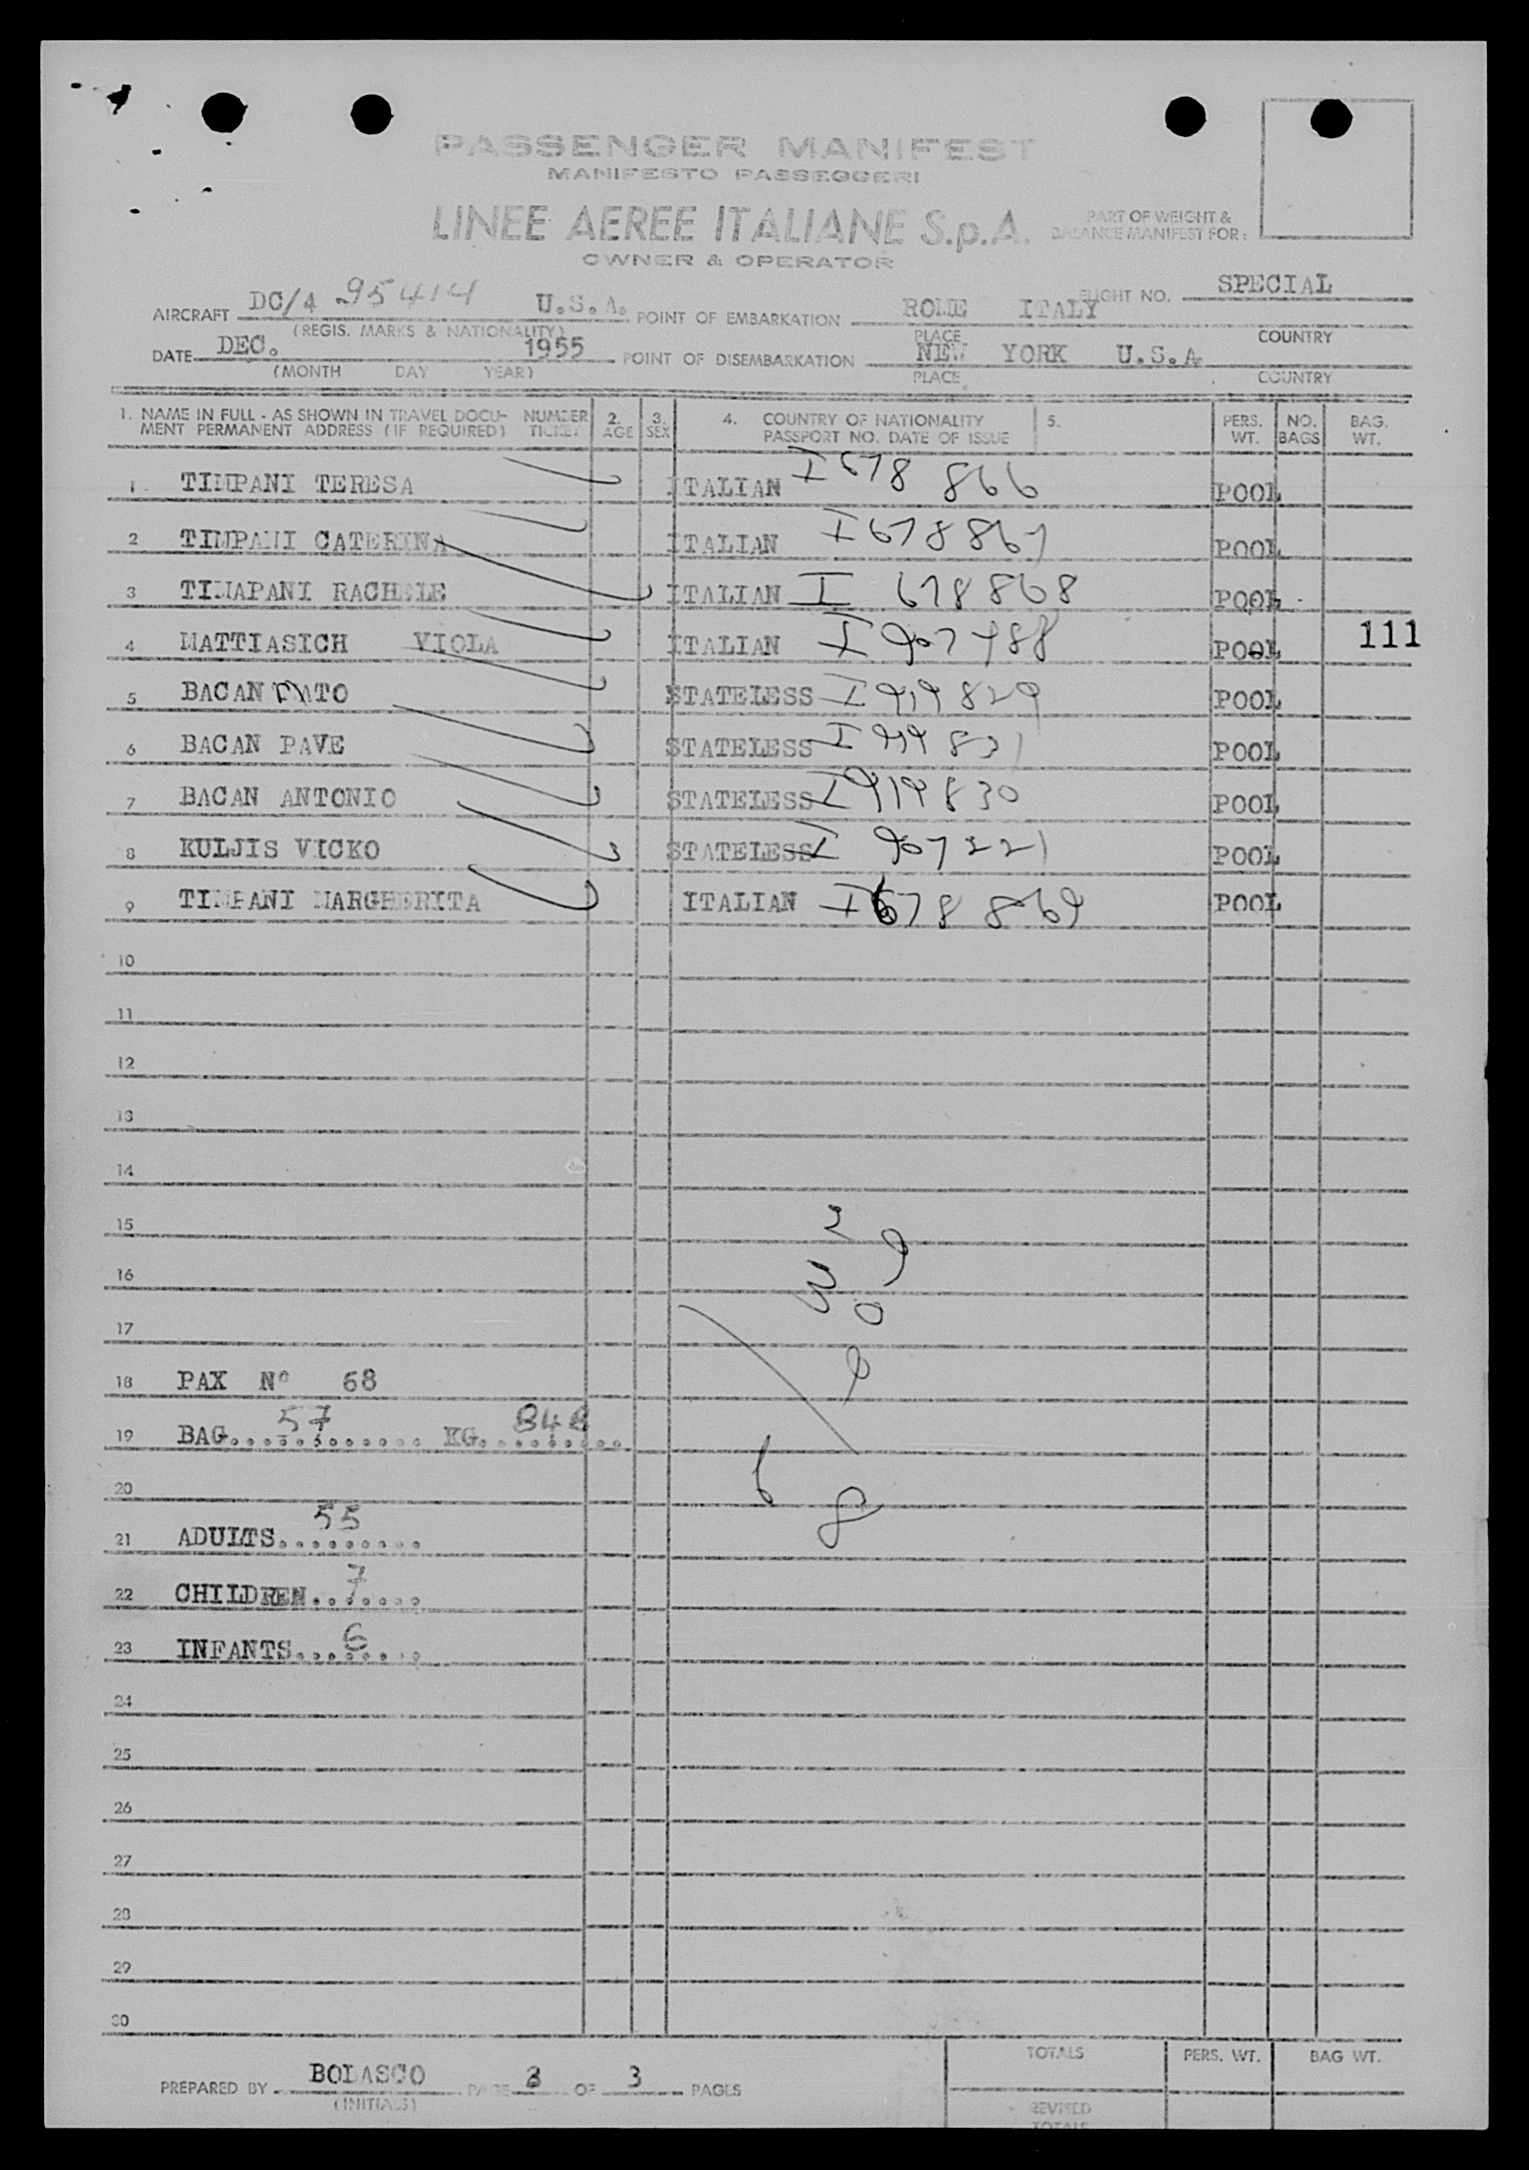 PASSENGER MANIFEST
MANIFESTO PASSEGGERI
LINEE AEREE ITALIANE S.p.A.
OWNER & OPERATOR
PART OF WEIGHT &
BALANCE MANIFEST FOR:
AIRCRAFT DC/4 95414 U.S.A. POINT OF EMBARKATION ROME ITALY FLIGHT NO. SPECIAL
(REGIS. MARKS & NATIONALITY) PLACE COUNTRY
DATE DEC. 1955 POINT OF DISEMBARKATION NEW YORK U.S.A.
(MONTH DAY YEAR) PLACE COUNTRY
1. NAME IN FULL - AS SHOWN IN TRAVEL DOCU- NUMBER 2. 3. 4. COUNTRY OF NATIONALITY 5. PERS. NO. BAG.
MENT PERMANENT ADDRESS (IF REQUIRED) TICKET AGE SEX PASSPORT NO. DATE OF ISSUE WT. BAGS WT.
1 TIMPANI TERESA ITALIAN I 678 866 POOL
2 TIMPANI CATERINA ITALIAN I 678867 POOL
3 TIMAPANI RACHELE ITALIAN I 678868 POOL
4 MATTIASICH VIOLA ITALIAN I 907488 POOL 111
5 BACAN TO STATELESS I 919 829 POOL
6 BACAN PAVE STATELESS I 919 831 POOL
7 BACAN ANTONIO STATELESS I 919830 POOL
8 KULJIS VICKO STATELESS I 907221 POOL
9 TIMPANI MARGHERITA ITALIAN I 678 869 POOL
10
11
12
13
14
15
16
17
18 PAX N° 68
19 BAG.... 57 .... KG. 848
20
21 ADULTS.... 55
22 CHILDREN.... 7
23 INFANTS.... 6
24
25
26
27
28
29
30
PREPARED BY BOLASCO PAGE 3 OF 3 PAGES
(INITIALS)
TOTALS PERS. WT. BAG WT.
REVISED
TOTALS